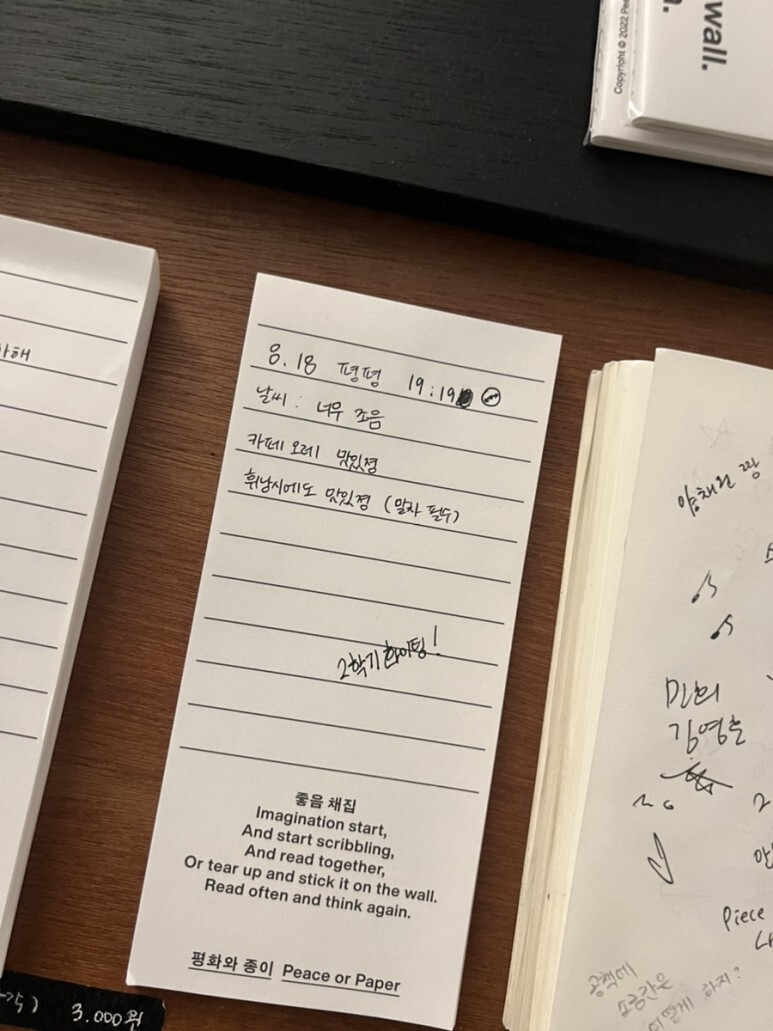 wall.
Copyright © 2022
8.18 평평 19:19
날씨 : 너무 조음
카페오레 맛있졍
휘낭시에도 맛있졍 (말차 필수)
2학기 화이팅!
좋음 채집
Imagination start,
And start scribbling,
And read together,
Or tear up and stick it on the wall.
Read often and think again.
평화와 종이 Peace or Paper
3.000원
양채원 짱
김영훈
Piece
공책에
소감란은
어떻게 하지?